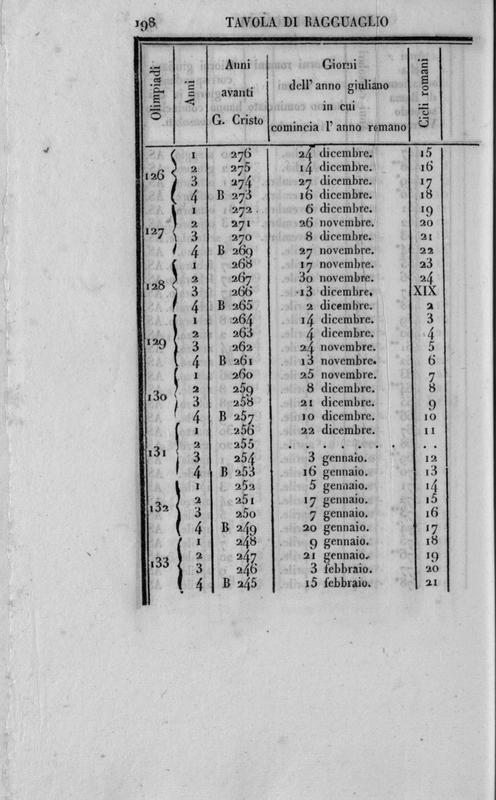 198 TAVOLA DI RAGGUAGLIO
Olimpiadi
Anni
Anni
avanti
G. Cristo
Giorni
dell' anno giuliano
in cui
comincia l' anno romano
Cicli romani
126 1 276 24 dicembre. 15
2 275 14 dicembre. 16
3 274 27 dicembre. 17
4 B 273 16 dicembre. 18
127 1 272 6 dicembre. 19
2 271 26 novembre. 20
3 270 8 dicembre. 21
4 B 269 27 novembre. 22
128 1 268 17 novembre. 23
2 267 30 novembre. 24
3 266 13 dicembre. XIX
4 B 265 2 dicembre. 2
129 1 264 14 dicembre. 3
2 263 4 dicembre. 4
3 262 24 novembre. 5
4 B 261 13 novembre. 6
130 1 260 25 novembre. 7
2 259 8 dicembre. 8
3 258 21 dicembre. 9
4 B 257 10 dicembre. 10
131 1 256 22 dicembre. 11
2 255 . . . . . . . . .
3 254 3 gennaio. 12
4 B 253 16 gennaio. 13
132 1 252 5 gennaio. 14
2 251 17 gennaio. 15
3 250 7 gennaio. 16
4 B 249 20 gennaio. 17
133 1 248 9 gennaio. 18
2 247 21 gennaio. 19
3 246 3 febbraio. 20
4 B 245 15 febbraio. 21